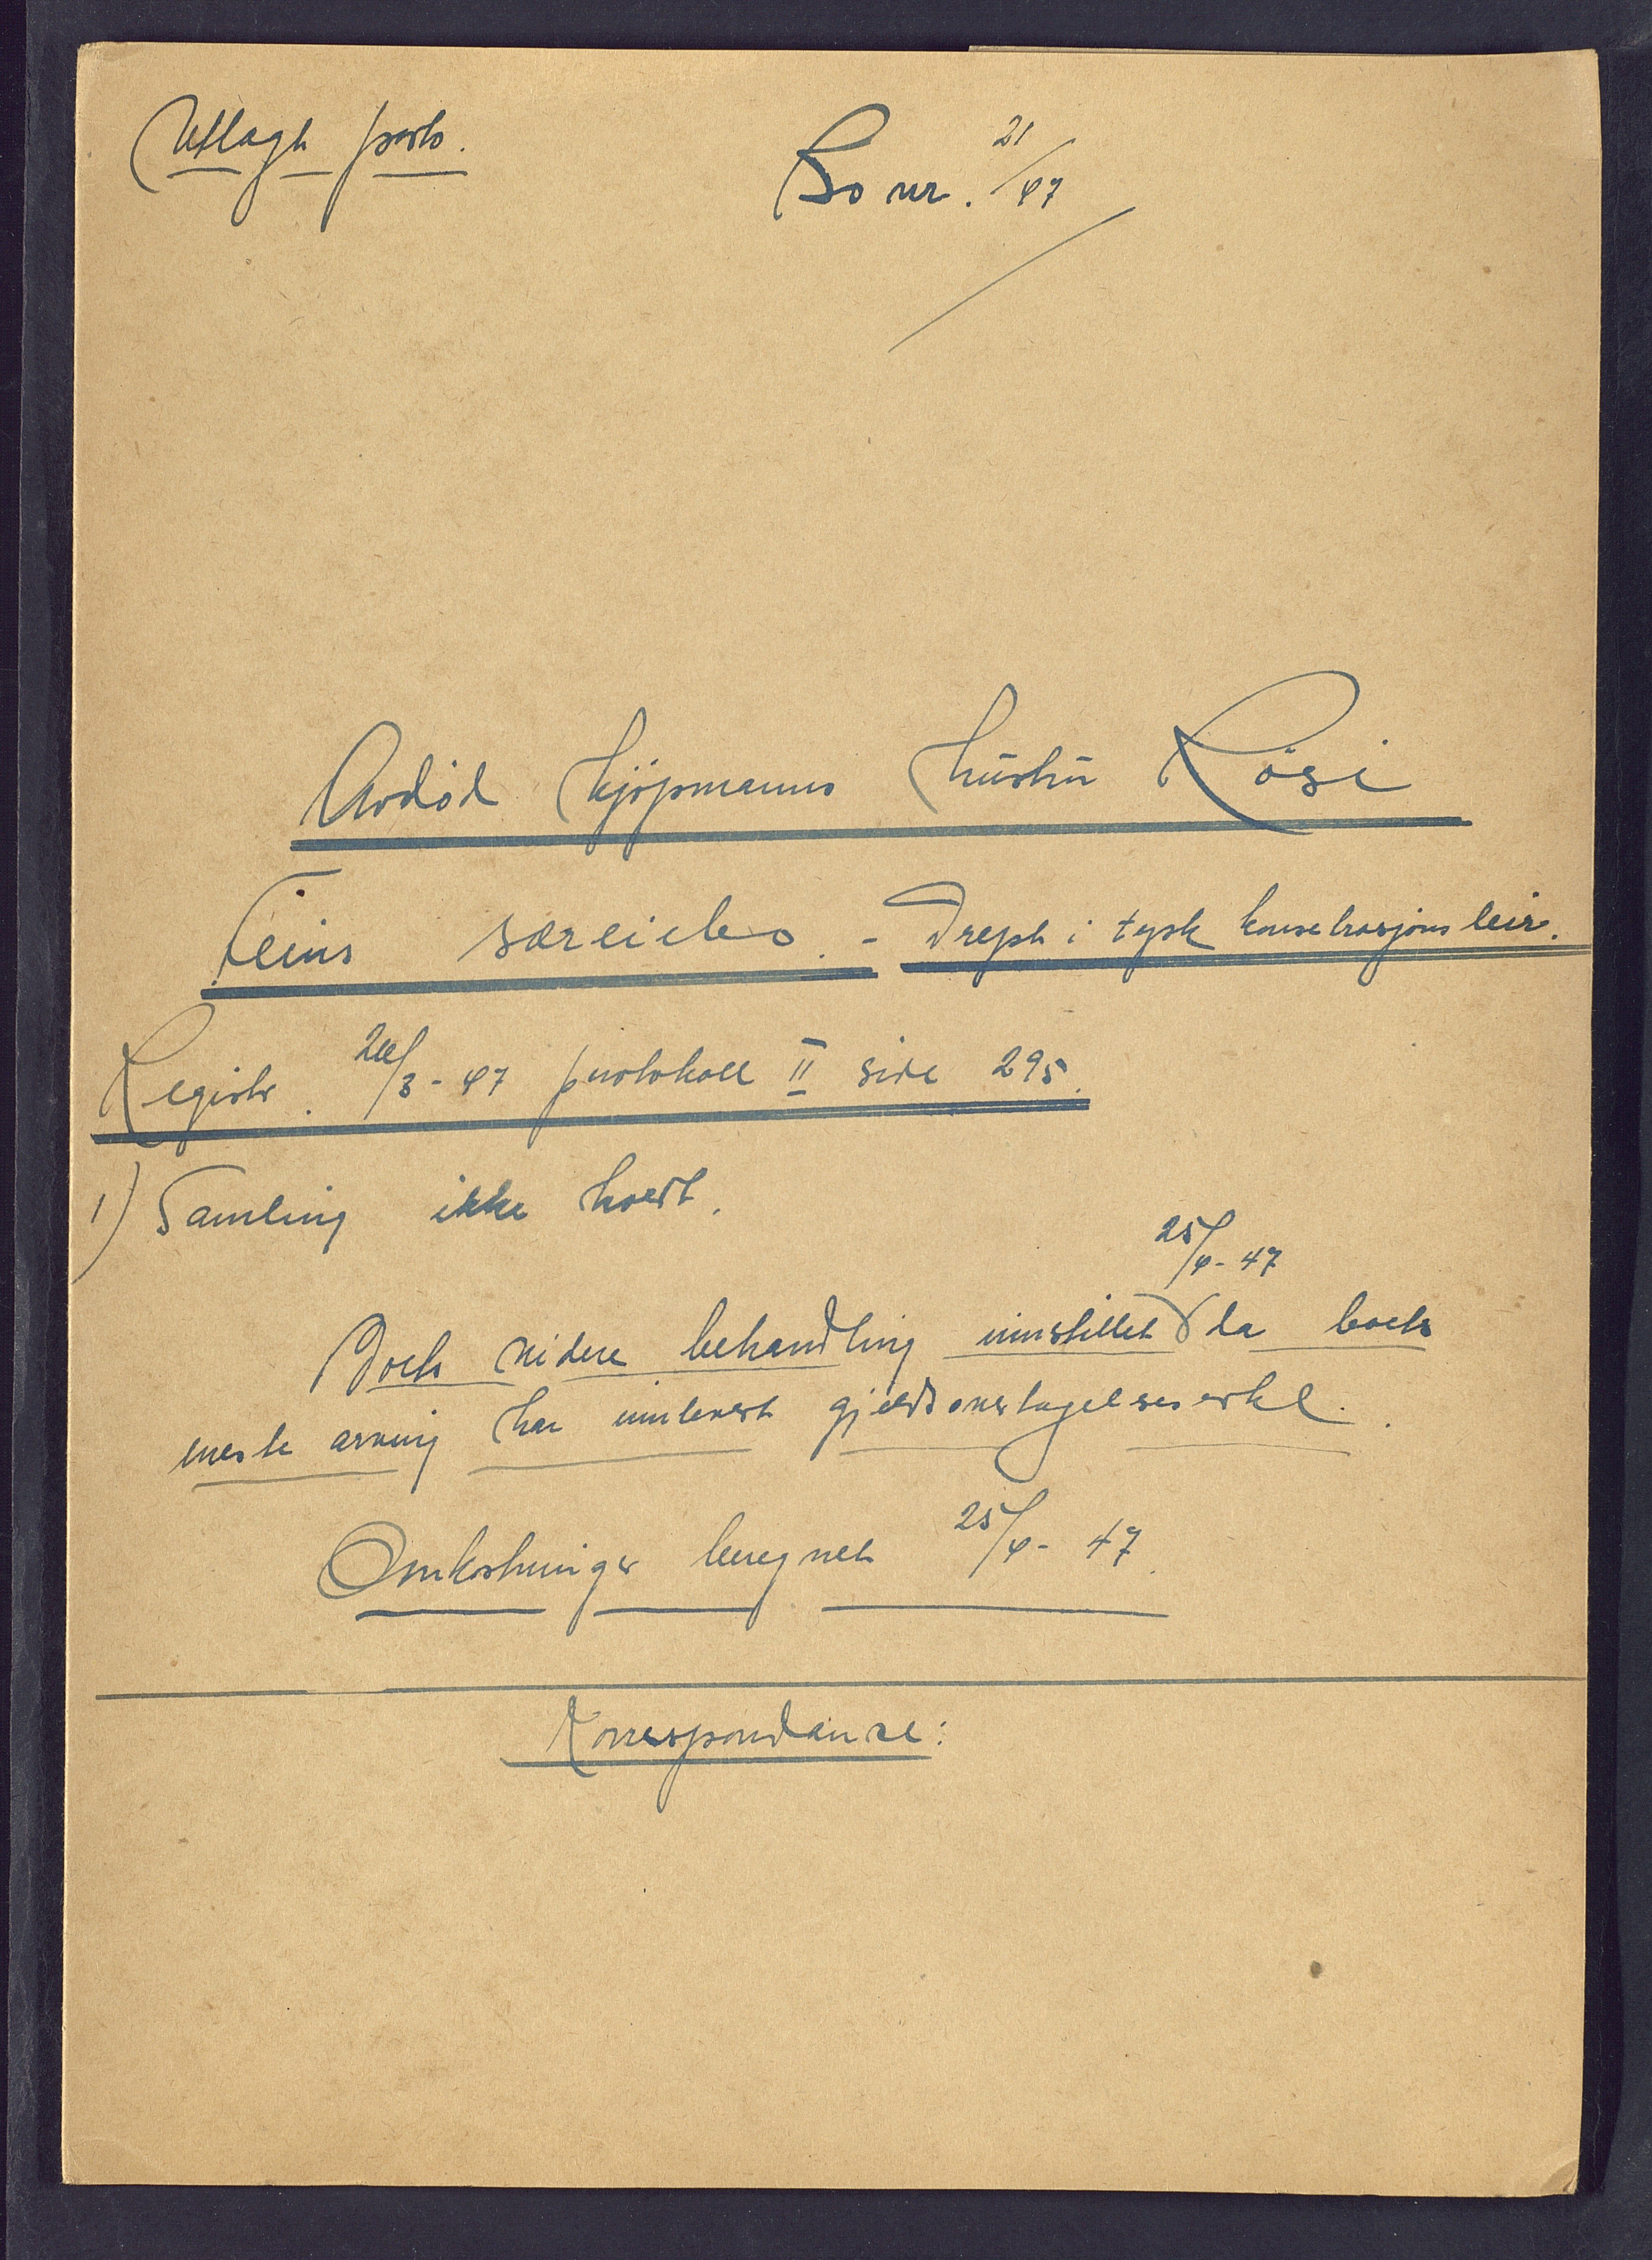 Utlagt porto.
Bo nr. 21/47
Avdöd kjöpmanns hustru Rösi
Feins særeiebo. - Drept i tysk konsetrasjonsleir.
Registr. 20/3-47 protokoll II side 295.
1) Samling ikke holdt.
25/4-47
Boets videre behandling innstillet da boets
eneste arving har innlevert gjeldsovertagelseserkl.
Omkostninger beregnet 25/4-47.
Korrespondanse: